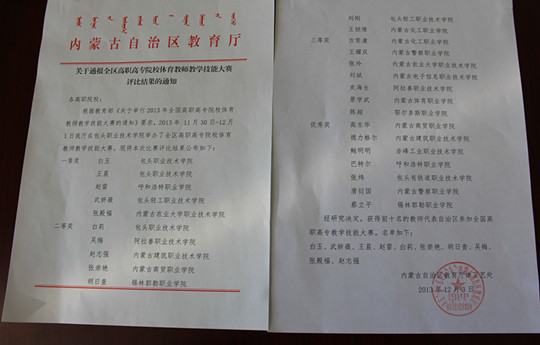 内蒙古自治区教育厅
关于通报全区高职高专院校体育教师教学技能大赛
评比结果的通知
各高职院校：
根据教育部《关于举行2013年全国高职高专院校体育
教师教学技能大赛的通知》要求，2013年11月30日-12月
1日我厅在包头职业技术学院举办了全区高职高专院校体育
教师教学技能大赛。现将本次大赛评比结果公布如下：
一等奖 白玉 包头职业技术学院
王晨 包头职业技术学院
赵雷 呼和浩特职业学院
武娇薇 包头轻工职业技术学院
张殿福 内蒙古农业大学职业技术学院
二等奖 白莉 包头职业技术学院
吴梅 阿拉善职业技术学院
赵志强 内蒙古建筑职业技术学院
张崇艳 内蒙古商贸职业学院
明日查 锡林郭勒职业学院
刘刚 包头轻工职业技术学院
三等奖 王 内蒙古化工职业学院
内蒙古化工职业学院
王耀庆 内蒙古警察职业学院
张玲 内蒙古农业大学职业技术学院
刘斌 内蒙古电子信息职业技术学院
史海生 阿拉善职业技术学院
景学武 内蒙古体育职业学院
陈超 鄂尔多斯职业学院
优秀奖 高东华 内蒙古商贸职业学院
德力格尔 内蒙古建筑职业技术学院
鲍明明 赤峰工业职业技术学院
巴特尔 呼和浩特职业学院
张炜 包头铁道职业技术学院
唐衍国 内蒙古警察职业学院
蔡立平 锡林郭勒职业学院
经研究决定，获得前十名的教师代表自治区参加全国高
职高专教学技能大赛。名单如下：
白玉、武娇薇、王晨、赵雷、白莉、张崇艳、明日查、吴梅、
张殿福、赵志强
内蒙古自治区教育厅体卫艺处
2013年12月3日